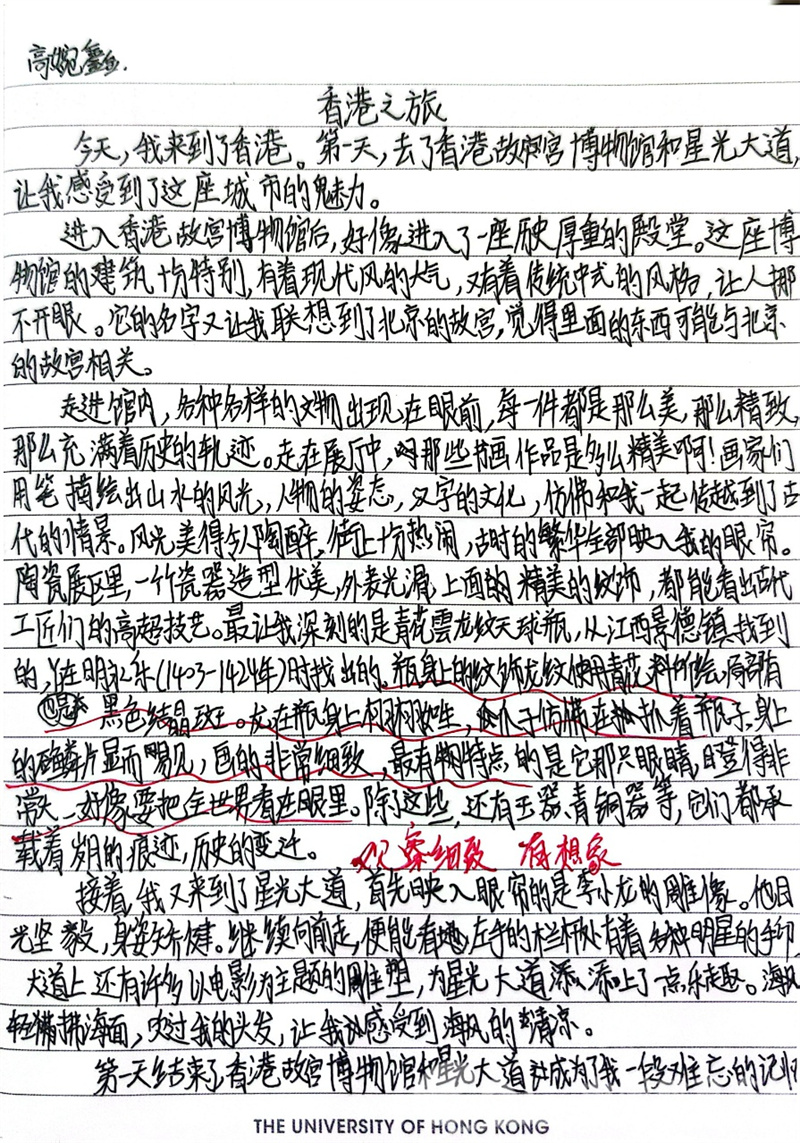 高婉鑫.
香港之旅
今天，我来到了香港。第一天，去了香港故宫博物馆和星光大道，
让我感受到了这座城市的魅力。
进入香港故宫博物馆后，好像进入了一座历史厚重的殿堂。这座博
物馆的建筑十分特别，有着现代风的大气，又有着传统中式的风格，让人挪
不开眼。它的名字又让我联想到了北京的故宫，觉得里面的东西可能与北京
的故宫相关。
走进馆内，各种各样的文物出现在眼前，每一件都是那么美，那么精致，
那么充满着历史的轨迹。走在展厅中，那些书画作品是多么精美啊！画家们
用笔描绘出山水的风光，人物的姿态，汉字的文化，仿佛和我一起传越到了古
代的情景。风光美得令人陶醉，街上十分热闹，古时的繁华全部映入我的眼帘。
陶瓷展区里，一个瓷器造型优美，外表光滑，上面的精美的纹饰，都能看出古代
工匠们的高超技艺。最让我深刻的是青花雲龙纹天球瓶，从江西景德镇找到
的，在明永乐(1403-1424年)时找出的。瓶身上的纹饰龙纹使用青花料所绘，局部有
黑色结晶斑。龙在瓶身上栩栩如生，爪子仿佛在扒着瓶子，身上
的鳞片显而易见，画的非常细致，最有特点的是它那只眼睛，瞪得非
常大，好像要把全世界看在眼里。除了这些，还有玉器、青铜器等，它们都承
载着岁月的痕迹，历史的变迁。
观察细致 有想象
接着，我又来到了星光大道，首先映入眼帘的是李小龙的雕像。他目
光坚毅，身姿矫健。继续向前走，便能看到左手的栏杆处有着各种明星的手印，
大道上还有许多以电影为主题的雕塑，为星光大道添上了一点乐趣。海风
轻拂海面，吹过我的头发，让我感受到海风的清凉。
第一天结束了，香港故宫博物馆和星光大道成为了我一段难忘的记忆
THE UNIVERSITY OF HONG KONG